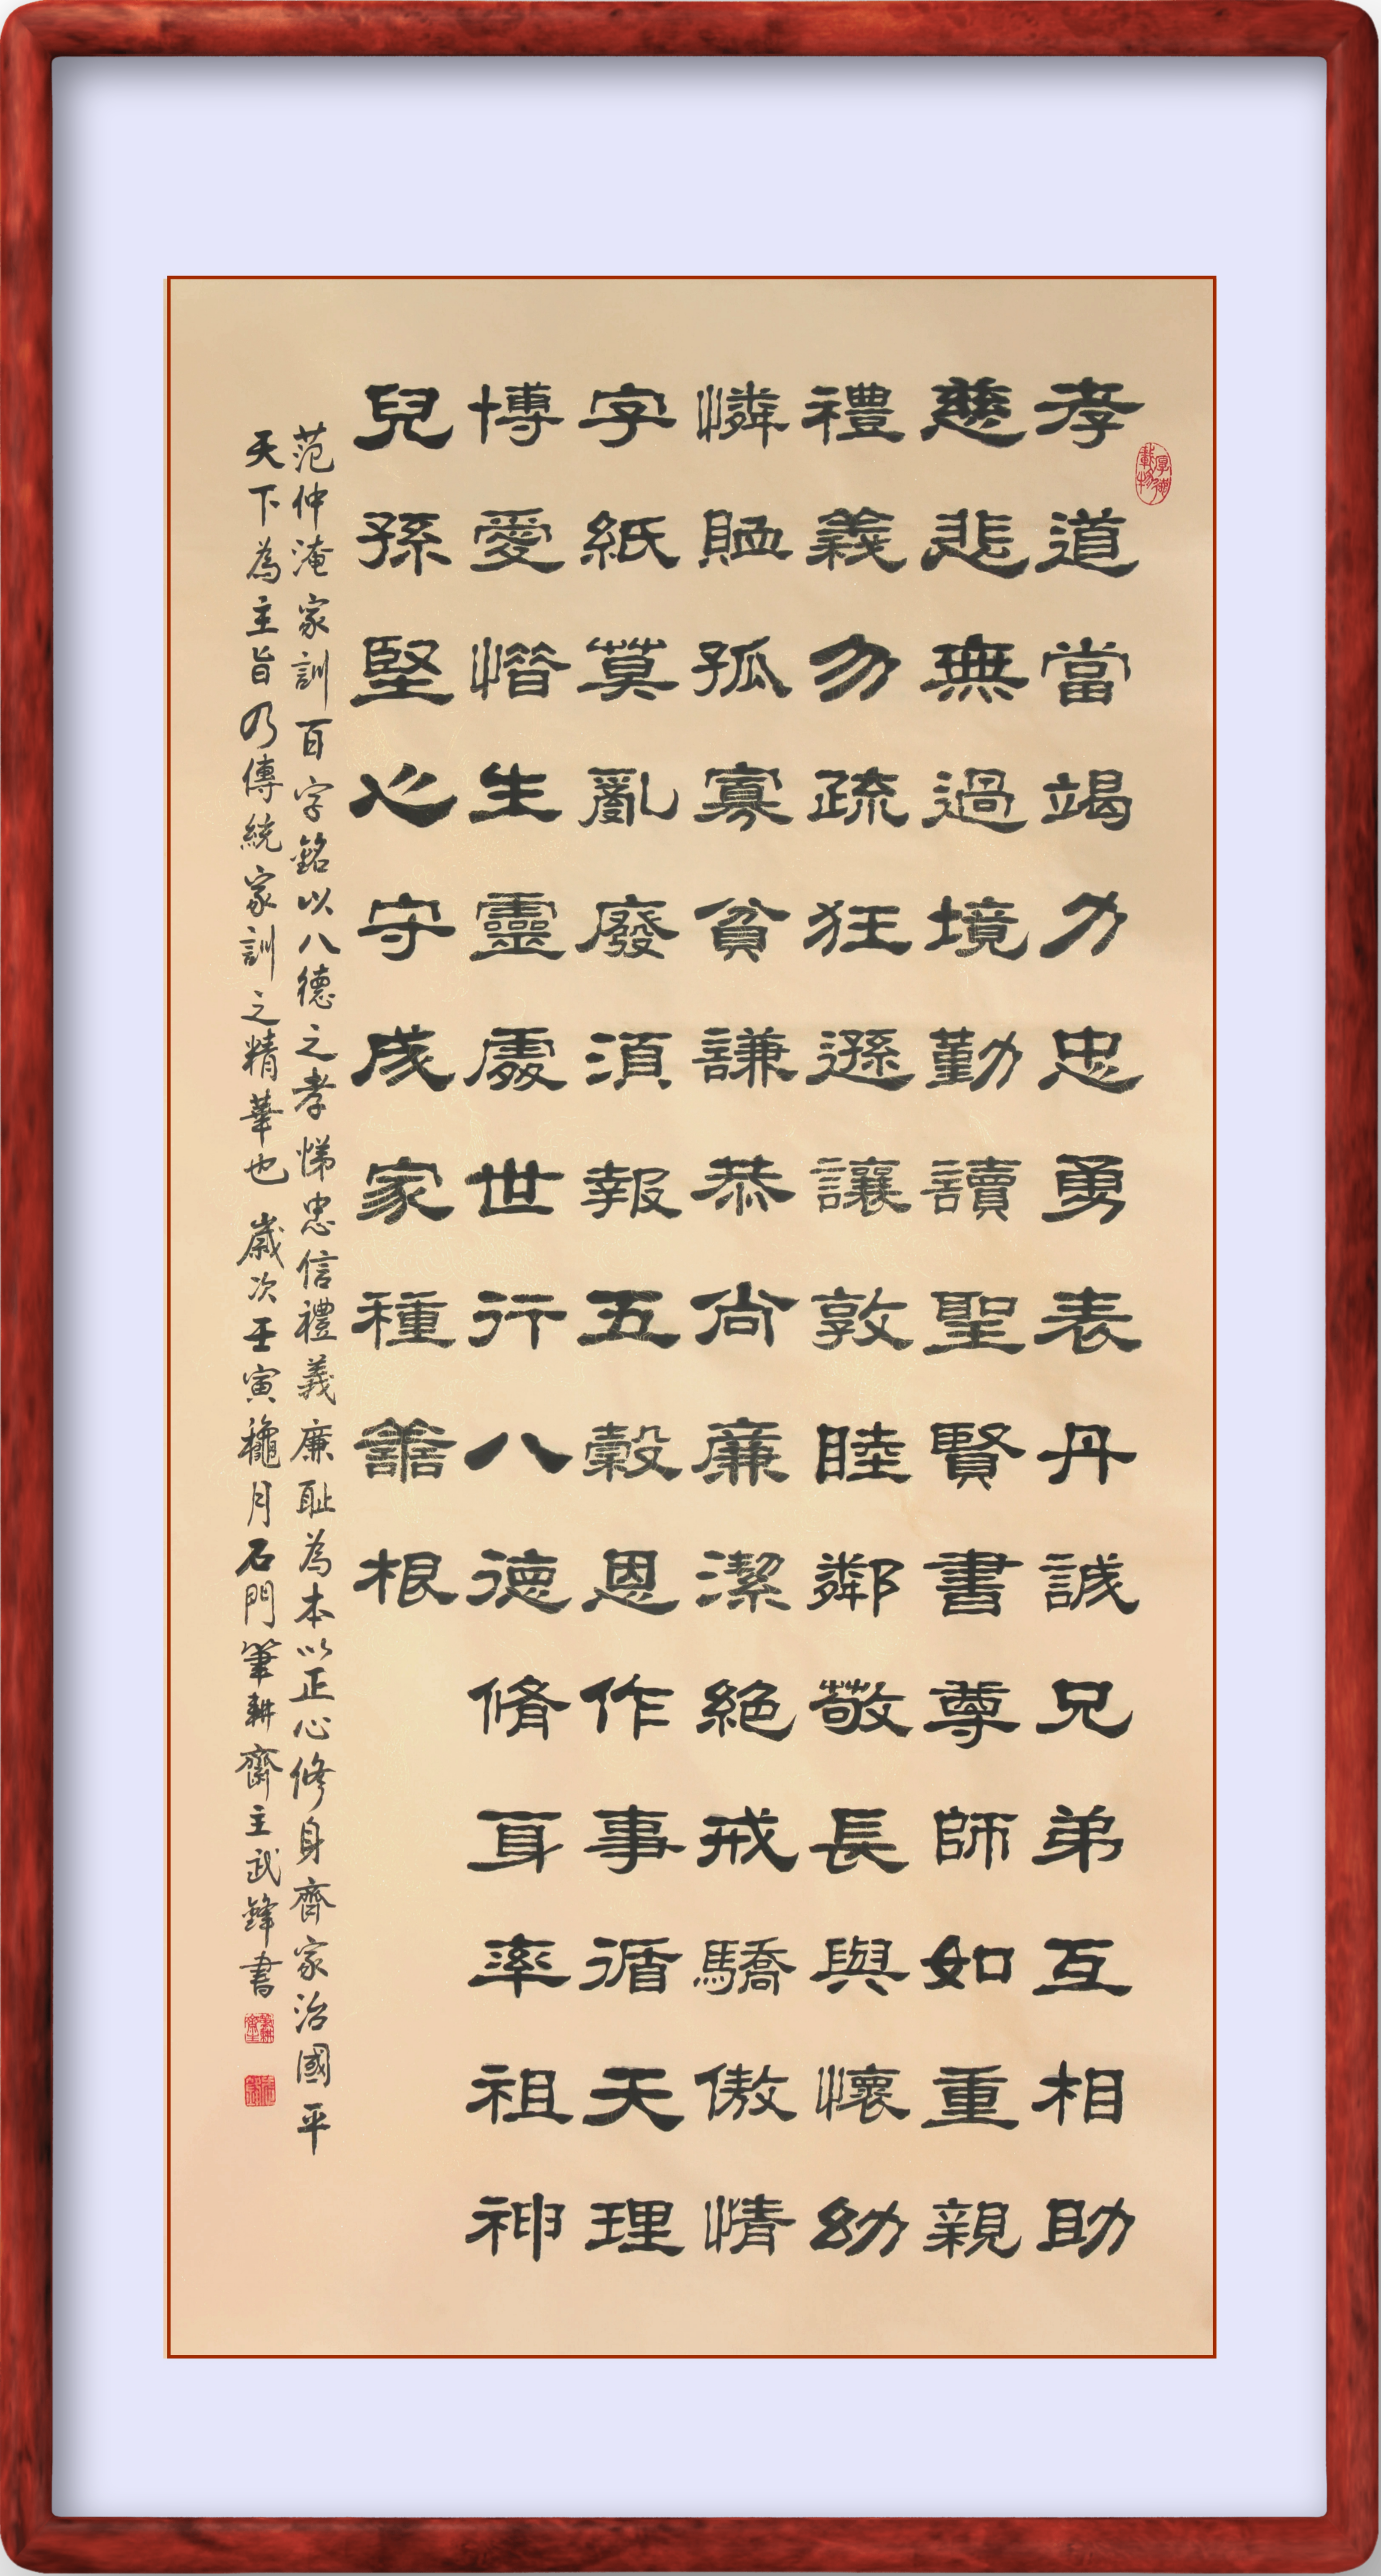 孝道當竭力忠勇表丹誠兄弟互相助
慈悲無過境勤讀聖賢書尊師如重親
禮義勿疏狂遜讓敦睦鄰敬長與懷幼
憐賉孤寡貧謙恭尚廉潔絕戒驕傲情
字紙莫亂廢須報五穀恩作事循天理
博愛惜生靈處世行八德脩身率祖神
兒孫堅心守成家種善根
范仲淹家訓百字銘以八德之孝悌忠信禮義廉恥為本以正心修身齊家治國平
天下為主旨乃傳統家訓之精華也 歲次壬寅龝月石門筆耕齋主武鋒書
厚德載物